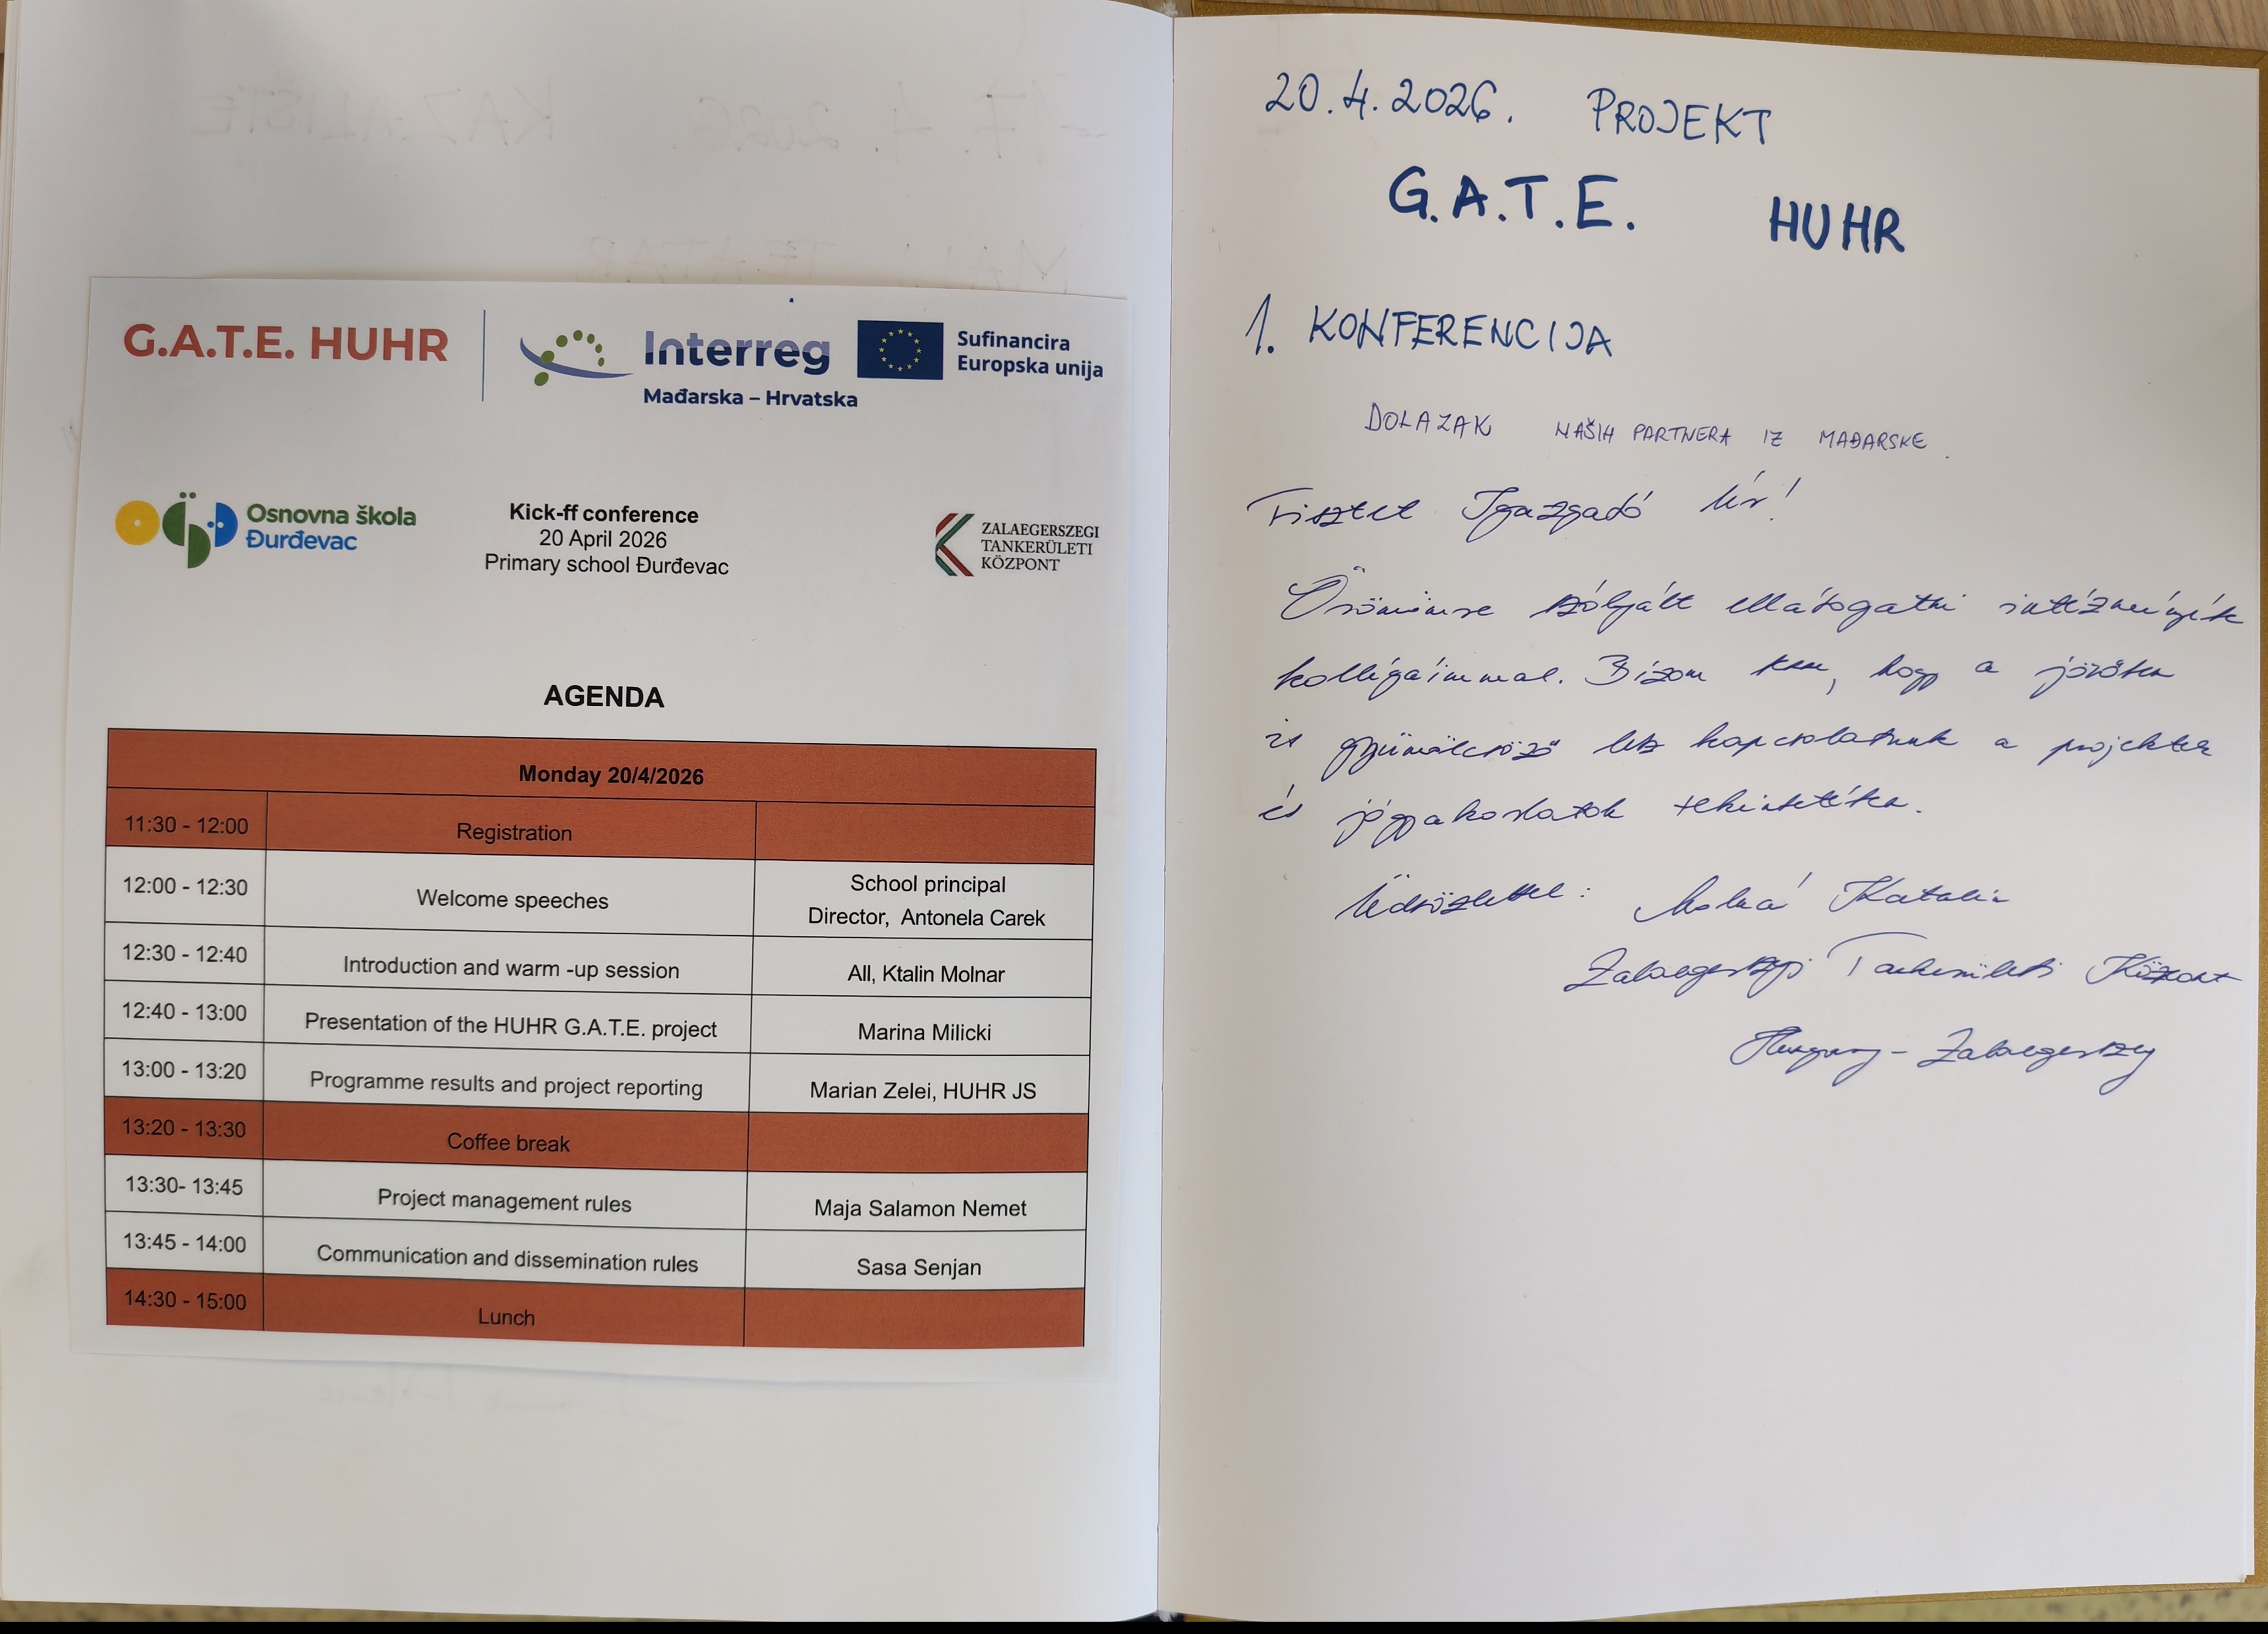 G.A.T.E. HUHR
Interreg
Mađarska – Hrvatska
Sufinancira
Europska unija
Osnovna škola
Đurđevac
Kick-ff conference
20 April 2026
Primary school Đurđevac
ZALAEGERSZEGI
TANKERÜLETI
KÖZPONT
AGENDA
Monday 20/4/2026
11:30 - 12:00 Registration
12:00 - 12:30 Welcome speeches School principal
Director, Antonela Carek
12:30 - 12:40 Introduction and warm -up session All, Ktalin Molnar
12:40 - 13:00 Presentation of the HUHR G.A.T.E. project Marina Milicki
13:00 - 13:20 Programme results and project reporting Marian Zelei, HUHR JS
13:20 - 13:30 Coffee break
13:30- 13:45 Project management rules Maja Salamon Nemet
13:45 - 14:00 Communication and dissemination rules Sasa Senjan
14:30 - 15:00 Lunch
20.4.2026. PROJEKT
G.A.T.E. HUHR
1. KONFERENCIJA
DOLAZAK NAŠIH PARTNERA IZ MAĐARSKE.
Tisztelt Igazgató Úr!
Örömömre szolgált ellátogatni
kollégáimmal. Bízom, hogy a jövőben
is gyümölcsöző lesz kapcsolatunk a projektek
és jógyakorlatok tekintetében.
Üdvözlettel: Molnár Katalin
Zalaegerszegi Tankerületi Központ
Hungary - Zalaegerszeg